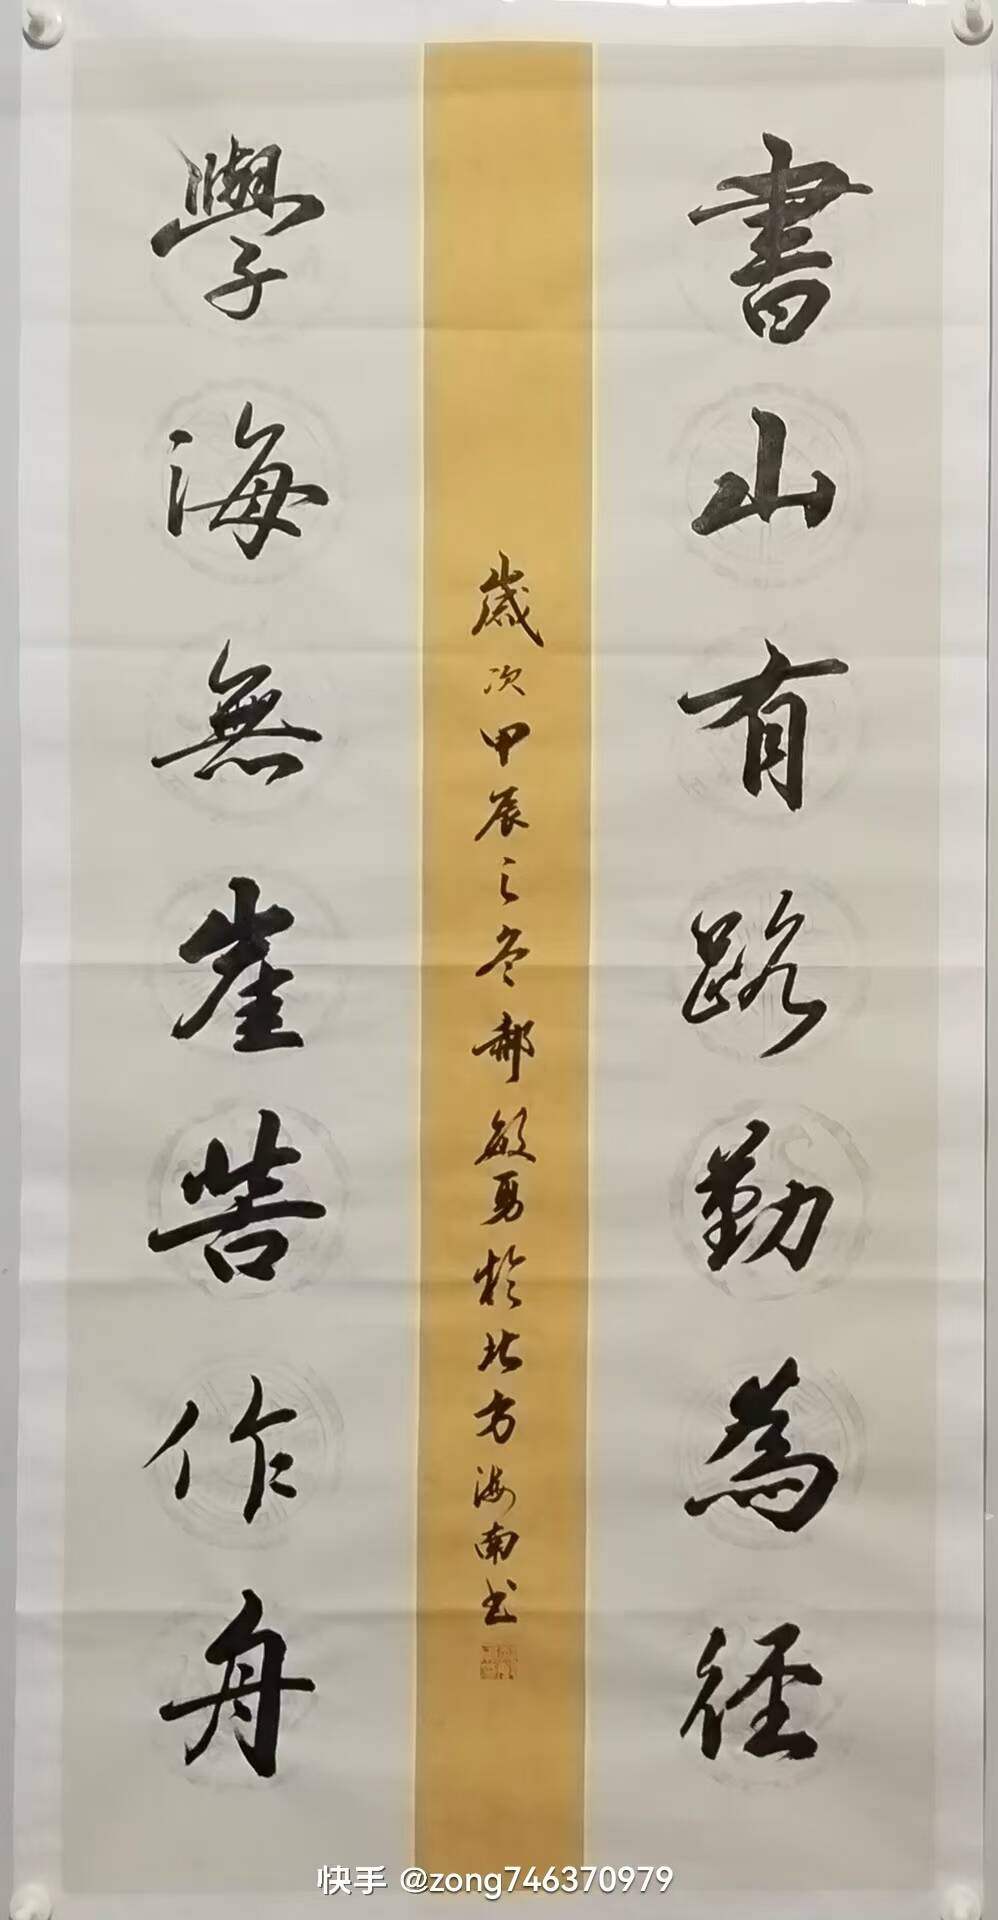 書山有路勤為徑
歲次甲辰之冬郝敏勇於北方海南书
學海無崖苦作舟
快手 @zong746370979